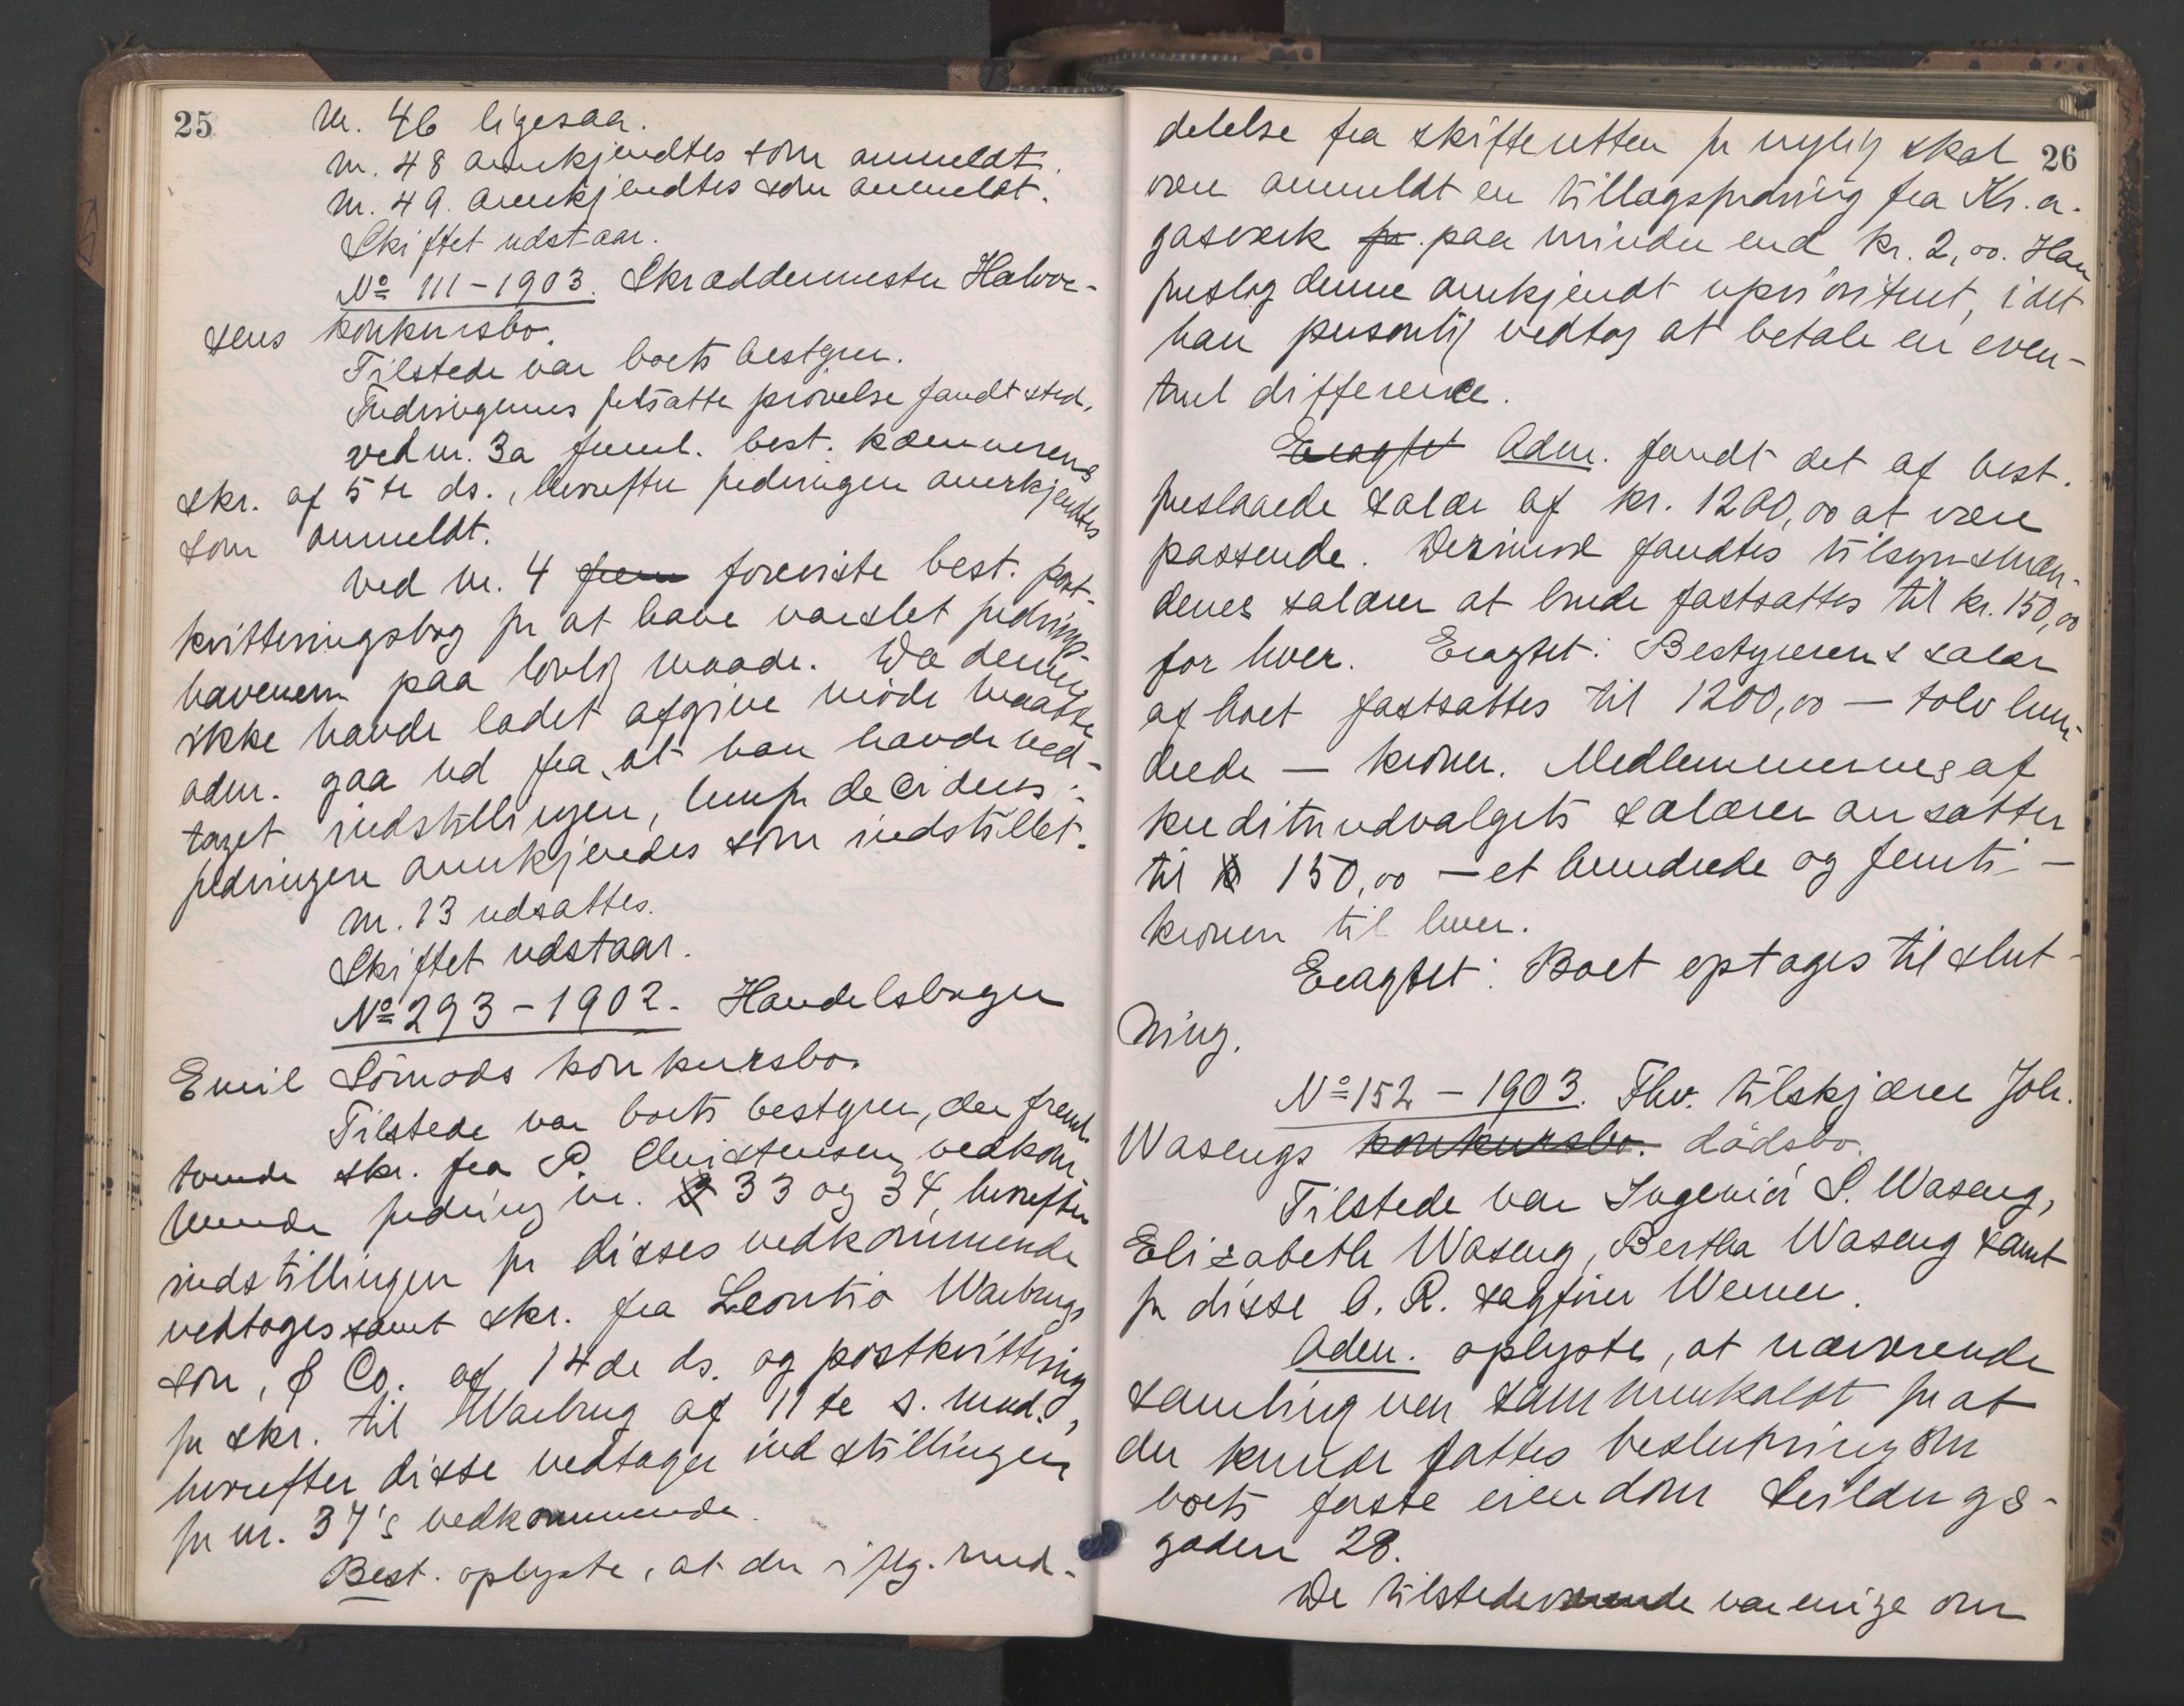 25
Nr. 46 ligesaa.
Nr. 48 anerkjendtes som anmeldt.
Nr. 49. anerkjendtes som anmeldt.
Skiftet udstaar.
No 111 - 1903. Skræddermester Halvor-
sens konkursbo.
Tilstede var boets bestyrer.
Fordringernes fortsatte prövelse fandt sted,
ved nr. 3a freml. best. kæmnerens
skr. af 5te ds., hvorefter fordringen anerkjendtes
som anmeldt.
Ved nr. 4 frem foreviste best. post-
kvitteringsbog for at have varslet fordrings-
haveren paa lovlig maade. Da denne
ikke havde ladet afgive möde maatte
adm. gaa ud fra, at han havde ved-
taget indstillingen, hvorfor decideres:
fordringen anerkjendes som indstillet.
Nr. 13 udsattes.
Skiftet udstaar.
No 293 - 1902. Handelsborger
Emil Sörnads konkursbo.
Tilstede var boets bestyrer, der frem-
tonede skr. fra P. Christensen vedkom-
mende fordring nr. 33 og 34, hvorefter
indstillingen for disses vedkommende
vedtoges samt skr. fra Leontio Warburgs
són, & Co. af 14de ds. og postkvittering
for skr. til Warburg af 11te s. mnd.,
hvorefter disse vedtager indstillingen
for nr. 37's vedkommende.
Best. oplyste, at der iflg. med-
26
delelse fra skifteretten for nylig skal
være anmeldt en tillægsfordring fra Kr.a.
gasværk for. paa mindre end kr. 2,00. Han
foreslog denne anerkjendt uprioritert, idet
han personlig vedtog at betale en even-
tuel difference.
Eragtet Adm. fandt det af best.
foreslaaede salær af kr. 1200,00 at være
passende. Derimod fandtes tilsynsmæn-
denes salærer at burde fastsattes til kr. 150,00
for hver. Eragtet: Bestyrerens salær
af boet fastsattes til 1200,00 — tolv hun-
drede — kroner. Medlemmernes af
kreditorudvalgets salærer ansattes
til 150,00 — et hundrede og femti —
kroner til hver.
Eragtet: Boet optages til slut-
ning.
No 152 - 1903. Fhv. tilskjærer Joh.
Wasengs konkursbo. dödsbo.
Tilstede var Ingeniör S. Waseng,
Elisabeth Waseng, Bertha Waseng samt
for disse O. R. sagförer Werner.
Adm. oplyste, at nærværende
samling var sammenkaldt for at
der kunde fattes beslutning om
boets faste eiendom Seildugs-
gaden 28.
De tilstedeværende var enige om